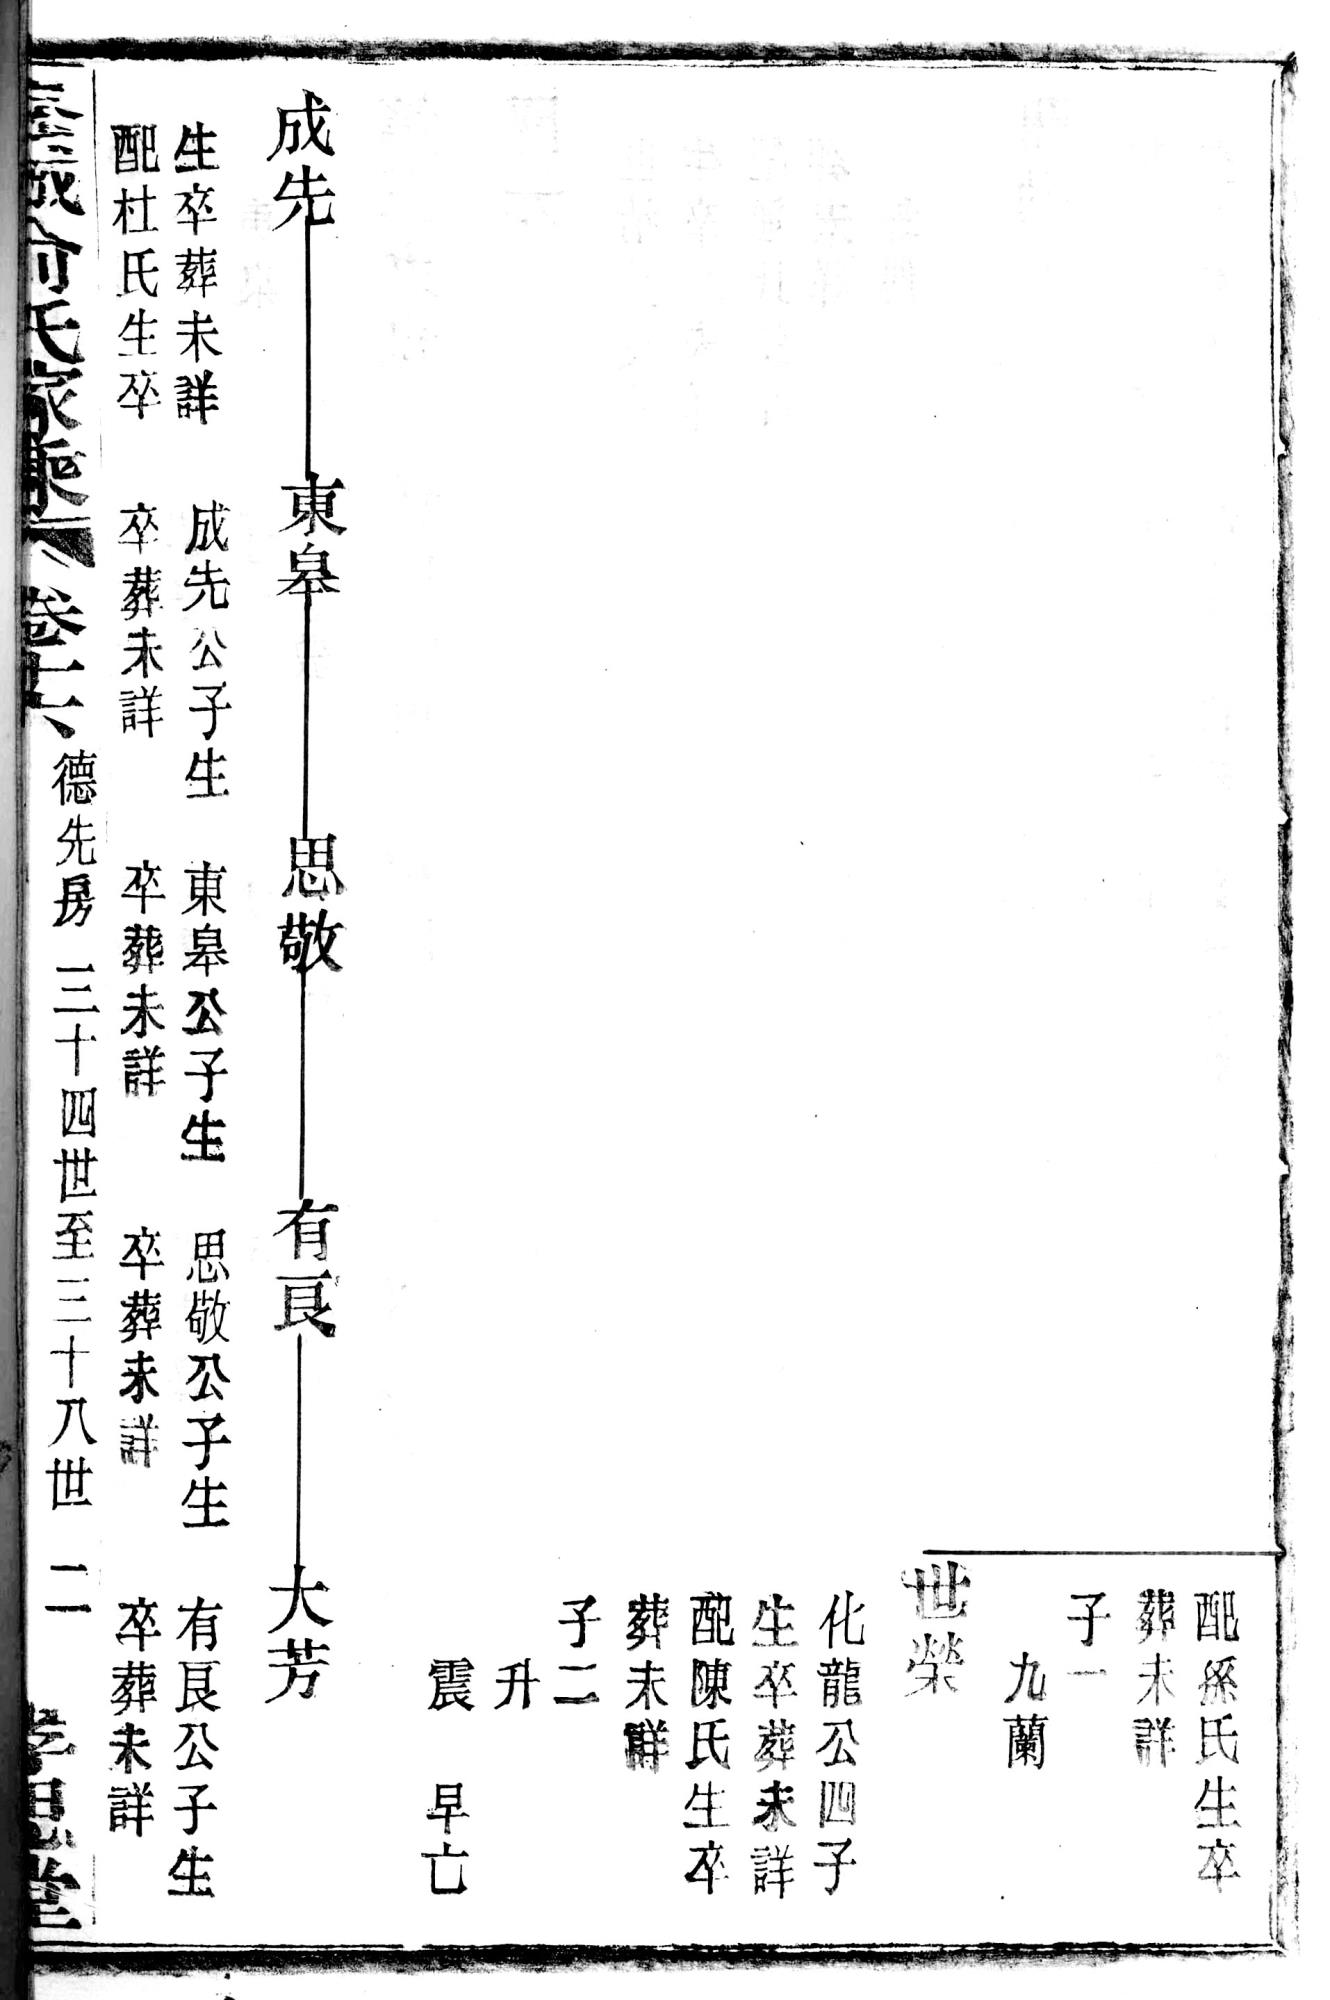 配孫氏生卒
葬未詳
子一
九蘭
世榮
化龍公四子
生卒葬未詳
配陳氏生卒
葬未詳
子二
升
震　早亡
成先
東皋
思敬
有良
大芳
生卒葬未詳
配杜氏生卒
成先公子生
卒葬未詳
東皋公子生
卒葬未詳
思敬公子生
卒葬未詳
有良公子生
卒葬未詳
俞氏家乘
卷十六
德先房　三十四世至三十八世　二
孝思堂